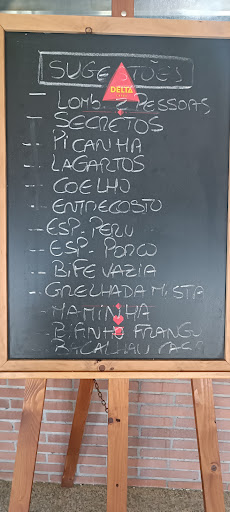 SUGESTÕES
DELTA
- LOMB 2 PESSOAS
- SECRETOS
- PICANHA
- LAGARTOS
- COELHO
- ENTRECOSTO
- ESP. PERU
- ESP. PORCO
- BIFE VAZIA
- GRELHADA MISTA
- MAMINHA
- FRANG
BACALHAU CASA